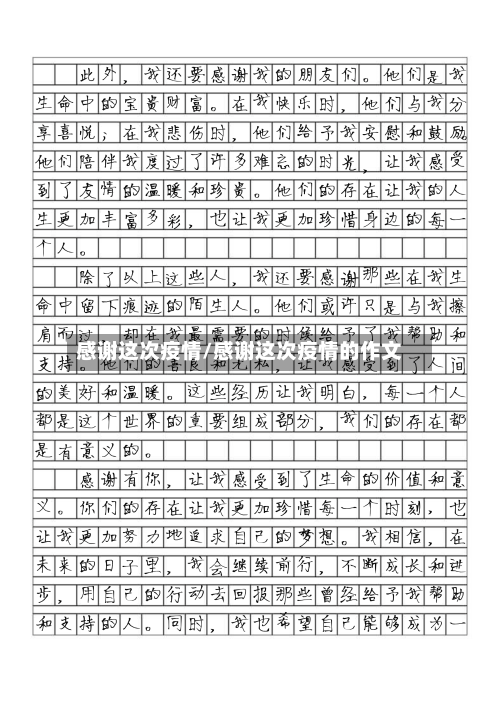 此外，我还要感谢我的朋友们。他们是我
生命中的宝贵财富。在我快乐时，他们与我分
享喜悦；在我悲伤时，他们给予我安慰和鼓励
他们陪伴我度过了许多难忘的时光，让我感受
到了友情的温暖和珍贵。他们的存在让我的人
生更加丰富多彩，也让我更加珍惜身边的每一
个人。
除了以上这些人，我还要感谢那些在我生
命中留下痕迹的陌生人。他们或许只是与我擦
肩而过，却在我最需要的时候给予了我帮助和
感谢这次疫情/感谢这次疫情的作文
支持。他们的善良和无私，让我感受到了人间
的美好和温暖。这些经历让我明白，每一个人
都是这个世界的重要组成部分，我们的存在都
是有意义的。
感谢有你，让我感受到了生命的价值和意
义。你们的存在让我更加珍惜每一个时刻，也
让我更加努力地追求自己的梦想。我相信，在
未来的日子里，我会继续前行，不断成长和进
步，用自己的行动去回报那些曾经给予我帮助
和支持的人。同时，我也希望自己能够成为一